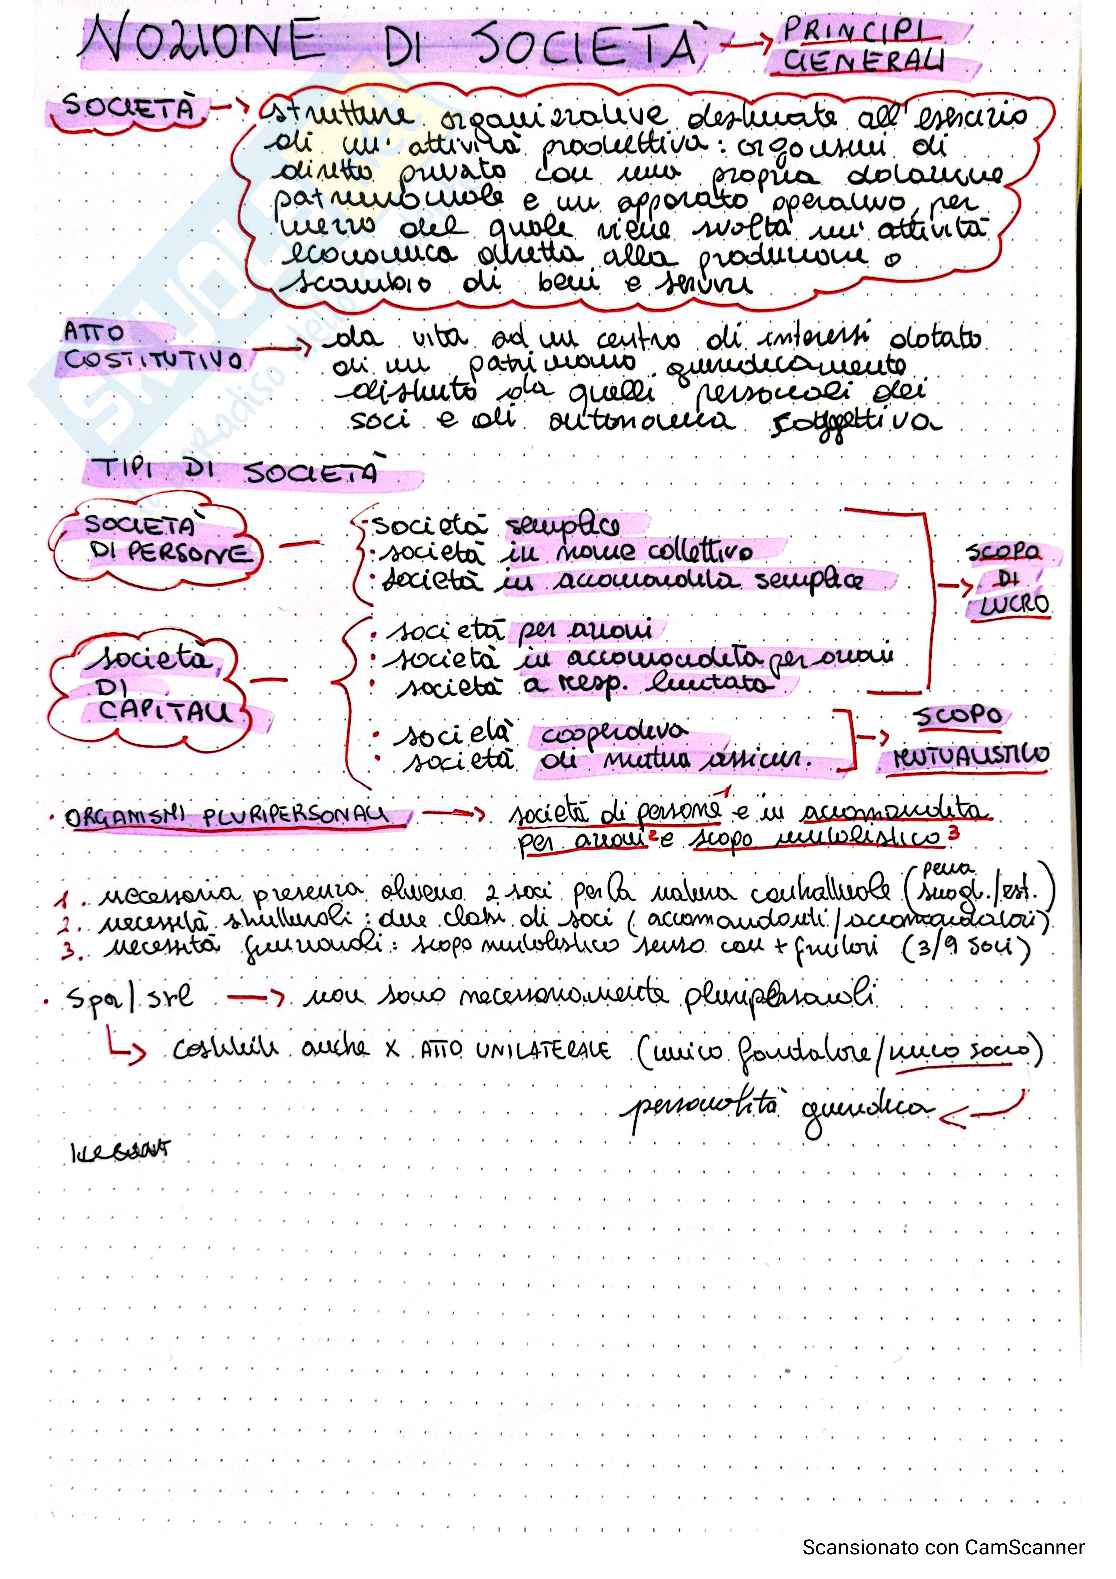 NOZIONE DI SOCIETÀ → PRINCIPI GENERALI
SOCIETÀ → strutture organizzative destinate all'esercizio
di un'attività produttiva: organismi di
diritto privato con una propria dotazione
patrimoniale e un apparato operativo, per
mezzo del quale viene svolta un'attività
economica diretta alla produzione o
scambio di beni e servizi
ATTO COSTITUTIVO → da vita ad un centro di interessi dotato
di un patrimonio giuridicamente
distinto da quelli personali dei
soci e di autonomia soggettiva
TIPI DI SOCIETÀ
SOCIETÀ DI PERSONE
· società semplice
· società in nome collettivo
· società in accomandita semplice
SCOPO DI LUCRO
società DI CAPITALI
· società per azioni
· società in accomandita per azioni
· società a resp. limitata
· società cooperativa
· società di mutua assicur.
SCOPO MUTUALISTICO
· ORGANISMI PLURIPERSONALI → società di persone 1 e in accomandita
per azioni 2 e scopo mutualistico 3
1. necessaria presenza almeno 2 soci per la natura contrattuale (pena sciogl./est.)
2. necessità strutturali: due classi di soci (accomandanti/accomandatari)
3. necessità funzionali: scopo mutualistico senso con + fruitori (3/9 soci)
· Spa/srl → non sono necessariamente pluripersonali
↳ costituite anche x ATTO UNILATERALE (unico fondatore/unico socio)
personalità giuridica ←
SKUOLA.net
Scansionato con CamScanner